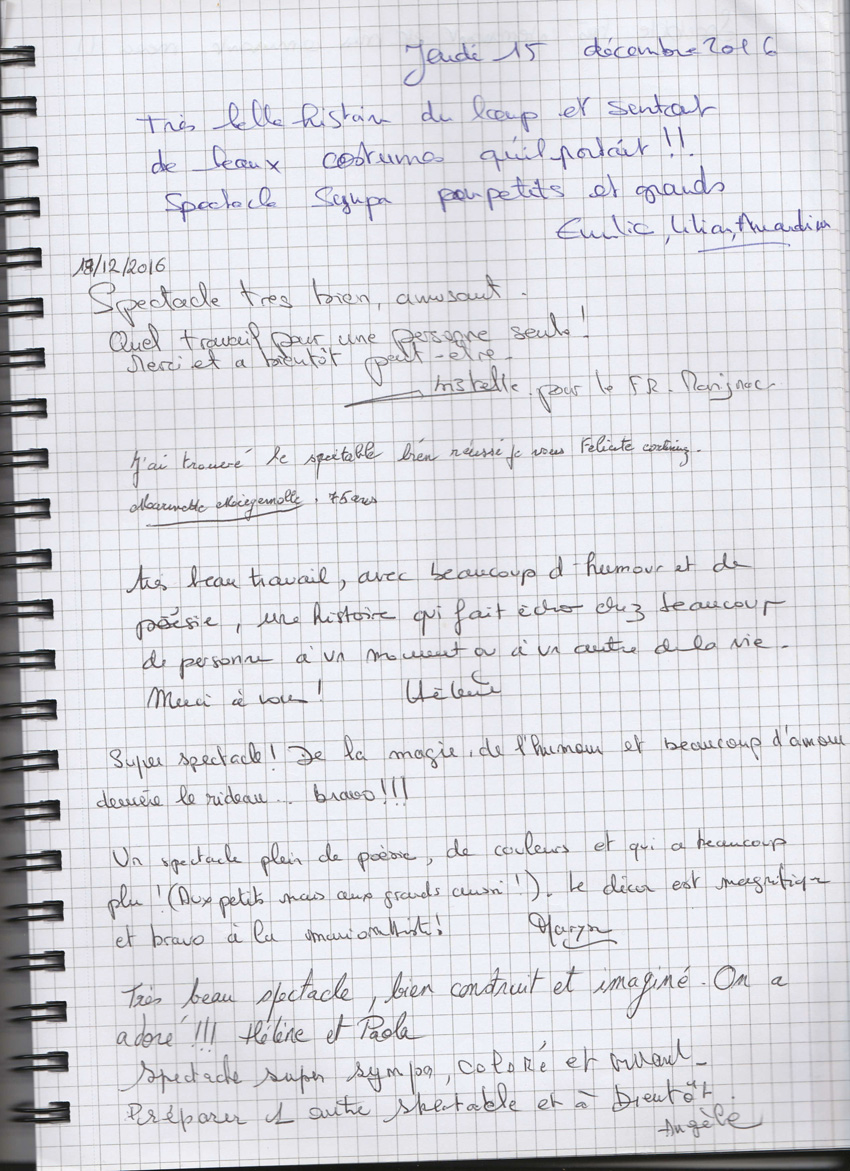 Jeudi 15 décembre 2016
Très belle histoire du loup et surtout
de beaux costumes qu'il portait !!
Spectacle Sympa pour petits et grands
Emilie, Lilian, Amandine
18/12/2016
Spectacle tres bien, amusant.
Quel travail pour une personne seule !
Merci et a bientôt peut-etre
pour le FR. Marignac
J'ai trouvé le spectable bien réussi je vous Felicite
75 ans
très beau travail, avec beaucoup d'humour et de
poésie, une histoire qui fait écho chez beaucoup
de personne à un moment ou à un autre de la vie.
Merci à vous ! Hélène
Super spectacle ! De la magie, de l'humour et beaucoup d'amour
derrière le rideau... bravo !!!
Un spectacle plein de poésie, de couleurs et qui a beaucoup
plu ! (Aux petits mais aux grands aussi !). Le décor est magnifique
et bravo à la marionnettiste !
Très beau spectacle, bien construit et imaginé. On a
adoré !!! Hélène et Paola
Spectacle super sympa, coloré et vivant_
Préparer 1 autre spectable et à Bientôt.
Angèle